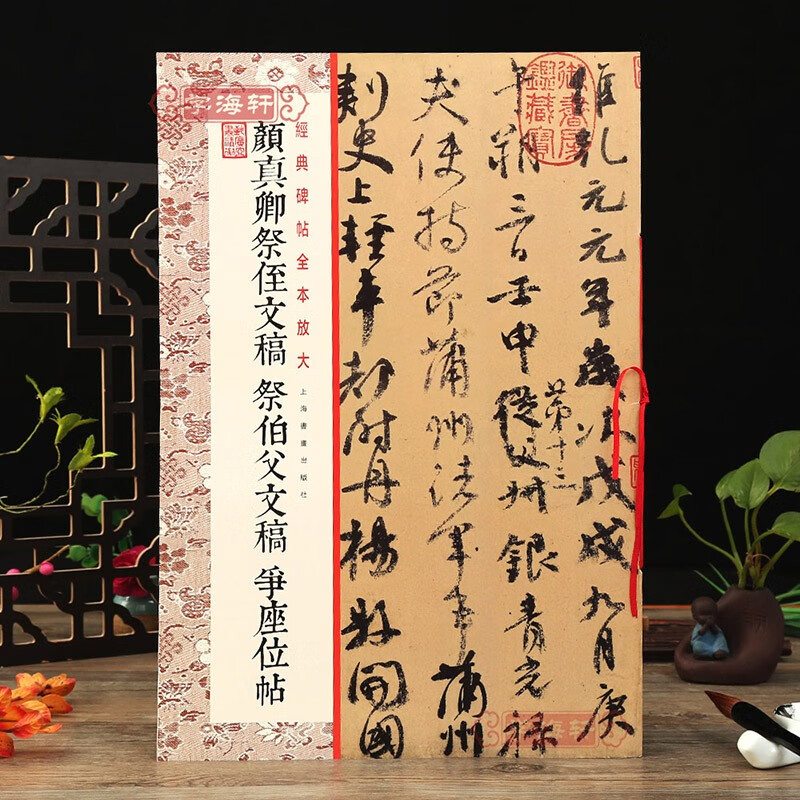 字海轩
經典碑帖全本放大
顏真卿祭侄文稿 祭伯父文稿 爭座位帖
上海書畫出版社
御書房鑑藏寶
維乾元元年歲次戊戌九月庚
午朔三日壬申從父銀青光祿
第十三
夫使持節蒲州諸軍事蒲州
刺史上輕車都尉丹楊縣開國
字海轩